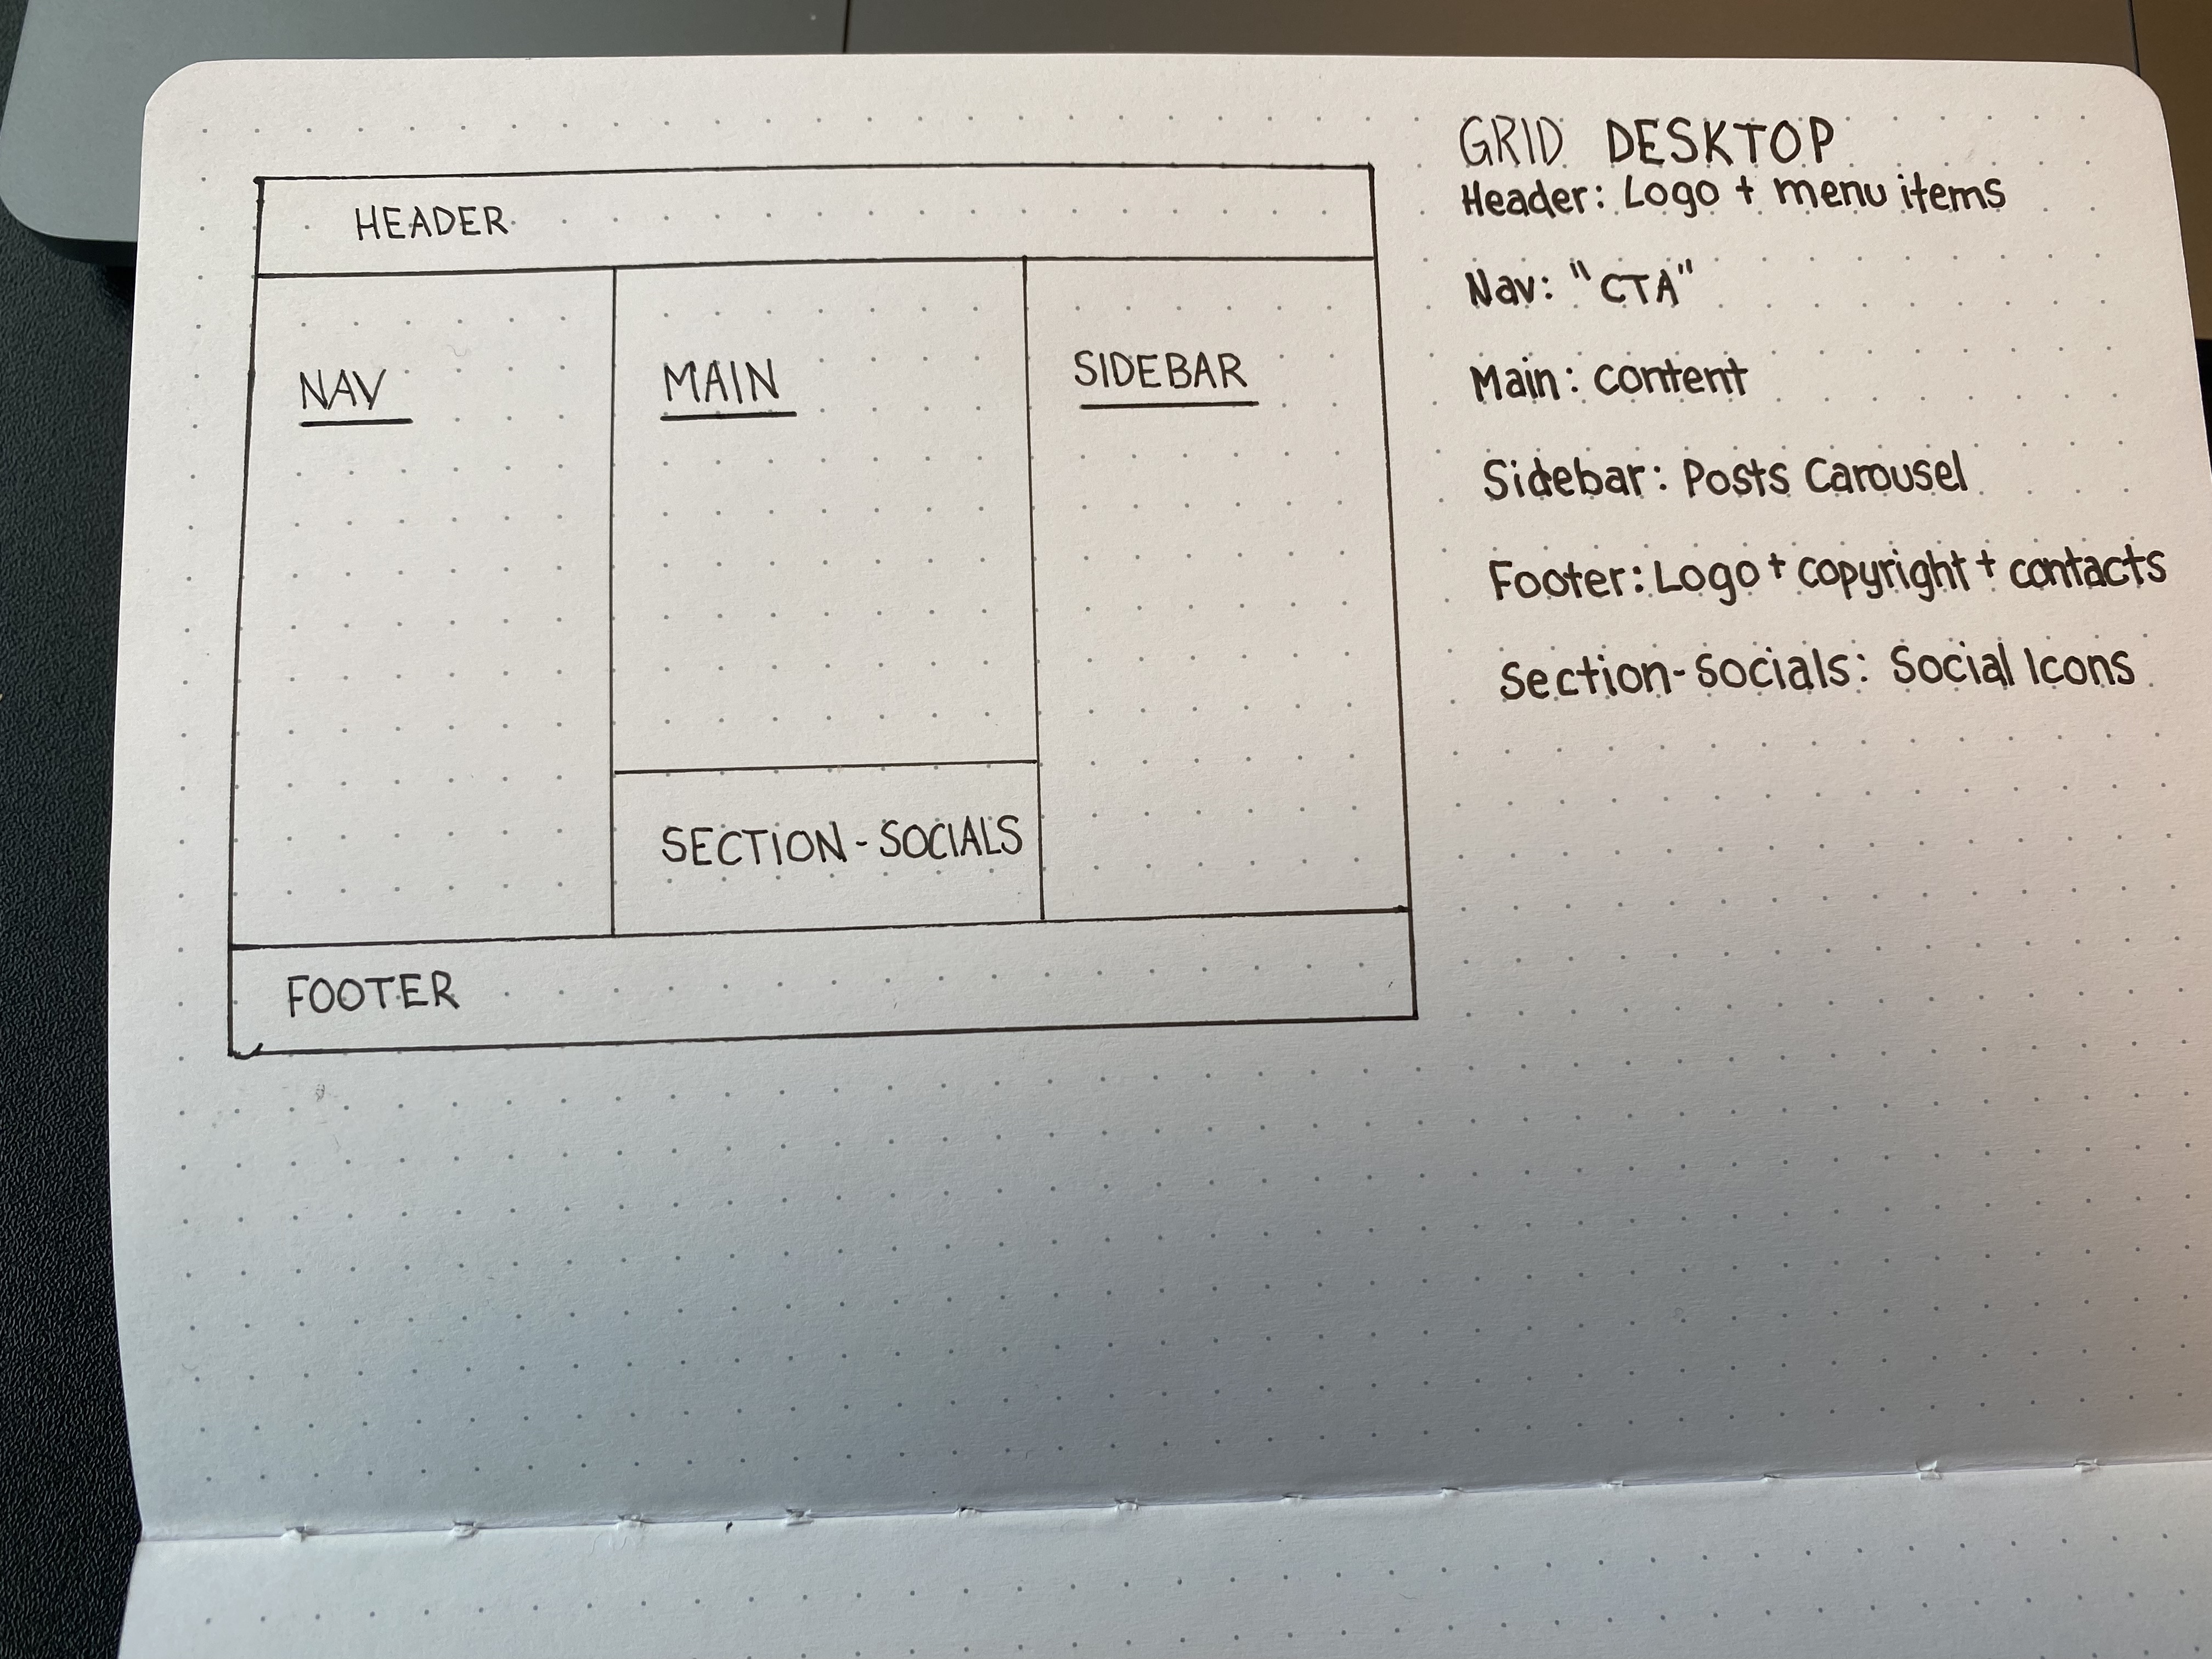 HEADER
NAV
MAIN
SIDEBAR
SECTION-SOCIALS
FOOTER
GRID DESKTOP
Header: Logo + menu items
Nav: "CTA"
Main: content
Sidebar: Posts Carousel
Footer: Logo + copyright + contacts
Section-Socials: Social Icons